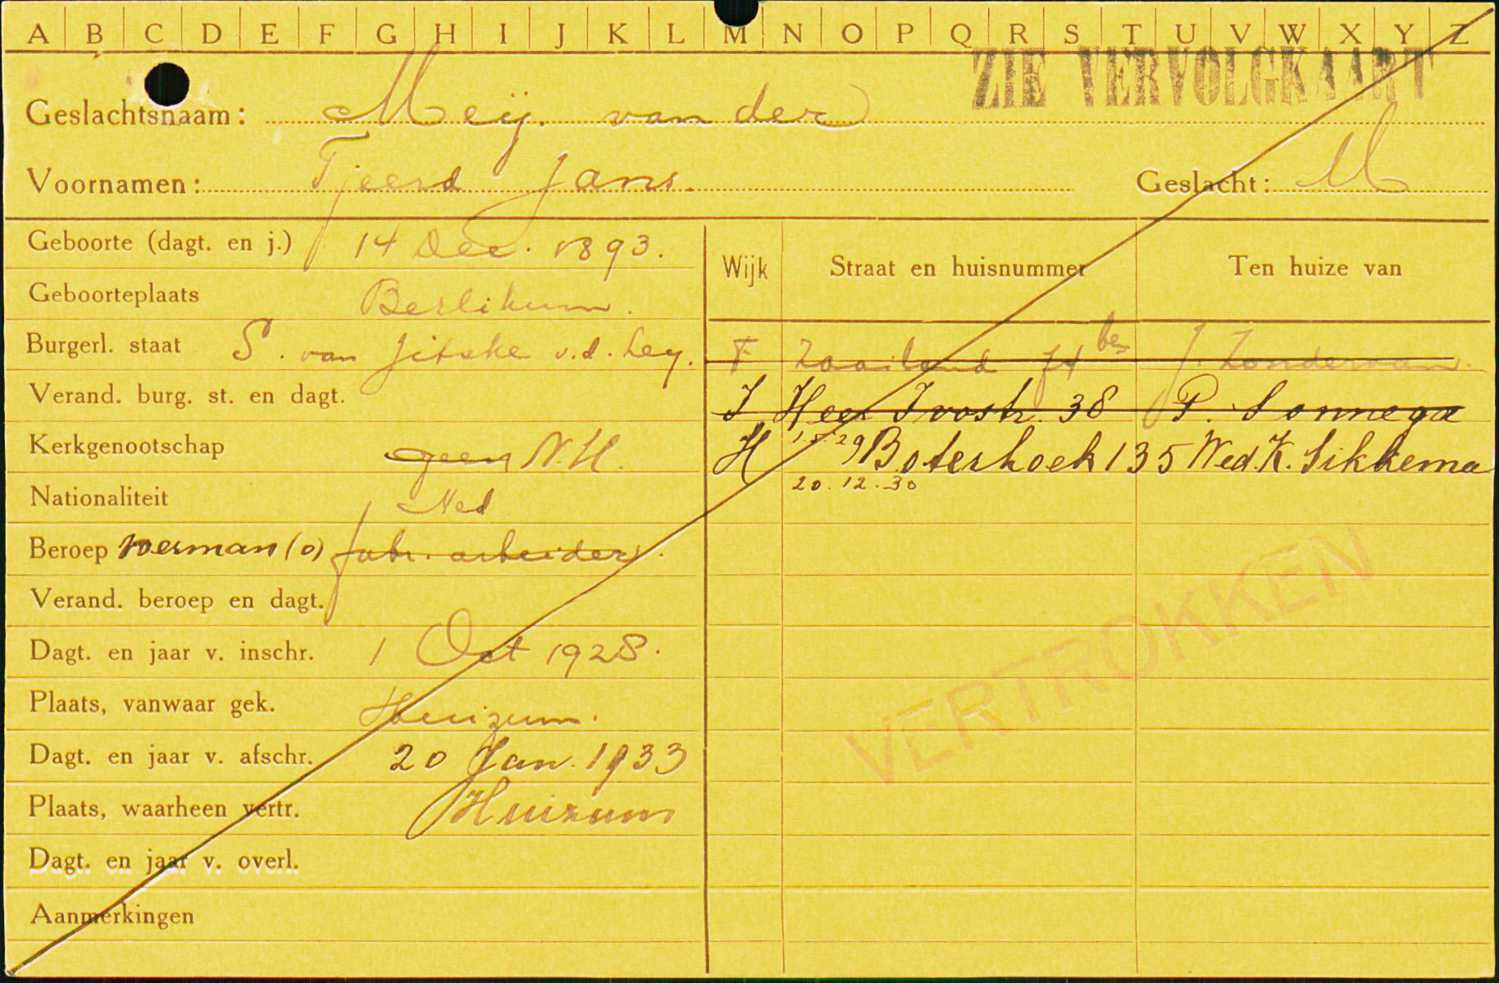 A B C D E F G H I J K L M N O P Q R S T U V W X Y Z
ZIE VERVOLGKAART
Geslachtsnaam: Meij. van der
Voornamen: Tjeerd Jans. Geslacht: M
Geboorte (dagt. en j.) 14 Dec. 1893.
Geboorteplaats Berlikum.
Burgerl. staat S. van Jitske v.d. Ley.
Verand. burg. st. en dagt.
Kerkgenootschap geen N.H.
Nationaliteit Ned
Beroep voerman (o) fabr. arbeider.
Verand. beroep en dagt.
Dagt. en jaar v. inschr. 1 Oct 1928.
Plaats, vanwaar gek. Huizum.
Dagt. en jaar v. afschr. 20 Jan. 1933
Plaats, waarheen vertr. Huizum
Dagt. en jaar v. overl.
Aanmerkingen
Wijk Straat en huisnummer Ten huize van
F Zaailand 74 bis J. Zondervan.
J Heer Ivostr. 38 P. Sonnega
H Boterhoek 135 Wed. K. Sikkema
20.12.30
VERTROKKEN